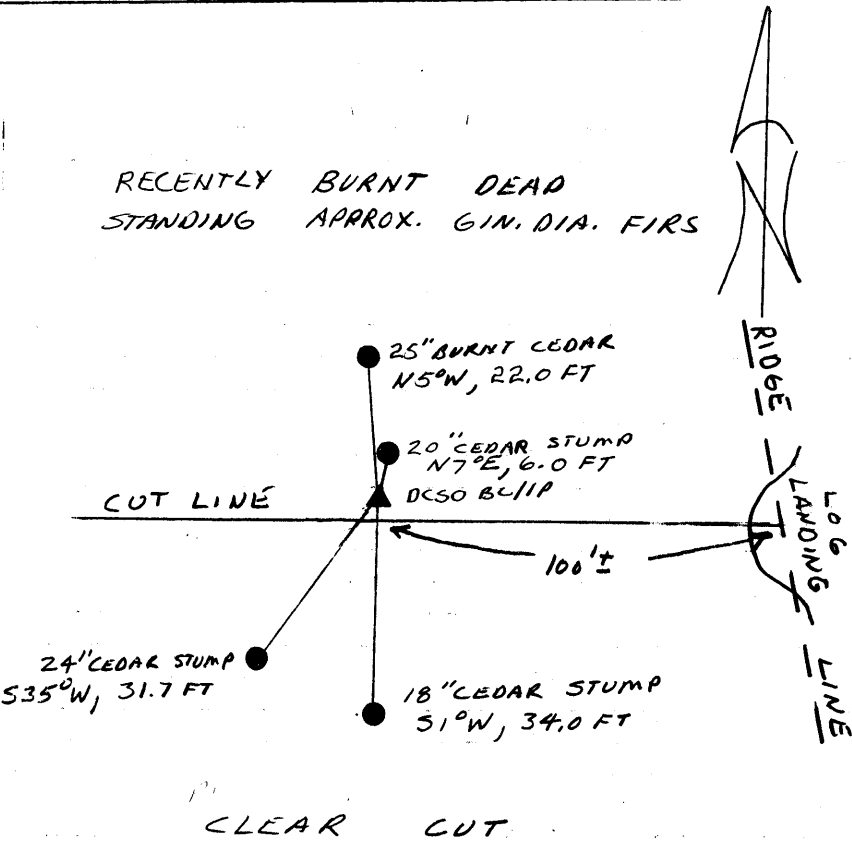 RECENTLY BURNT DEAD
STANDING APPROX. 6IN. DIA. FIRS
25" BURNT CEDAR
N5°W, 22.0 FT
20" CEDAR STUMP
N7°E, 6.0 FT
CUT LINE
100'±
24" CEDAR STUMP
S35°W, 31.7 FT
18" CEDAR STUMP
S1°W, 34.0 FT
RIDGE
LOG
LANDING
LINE
CLEAR CUT